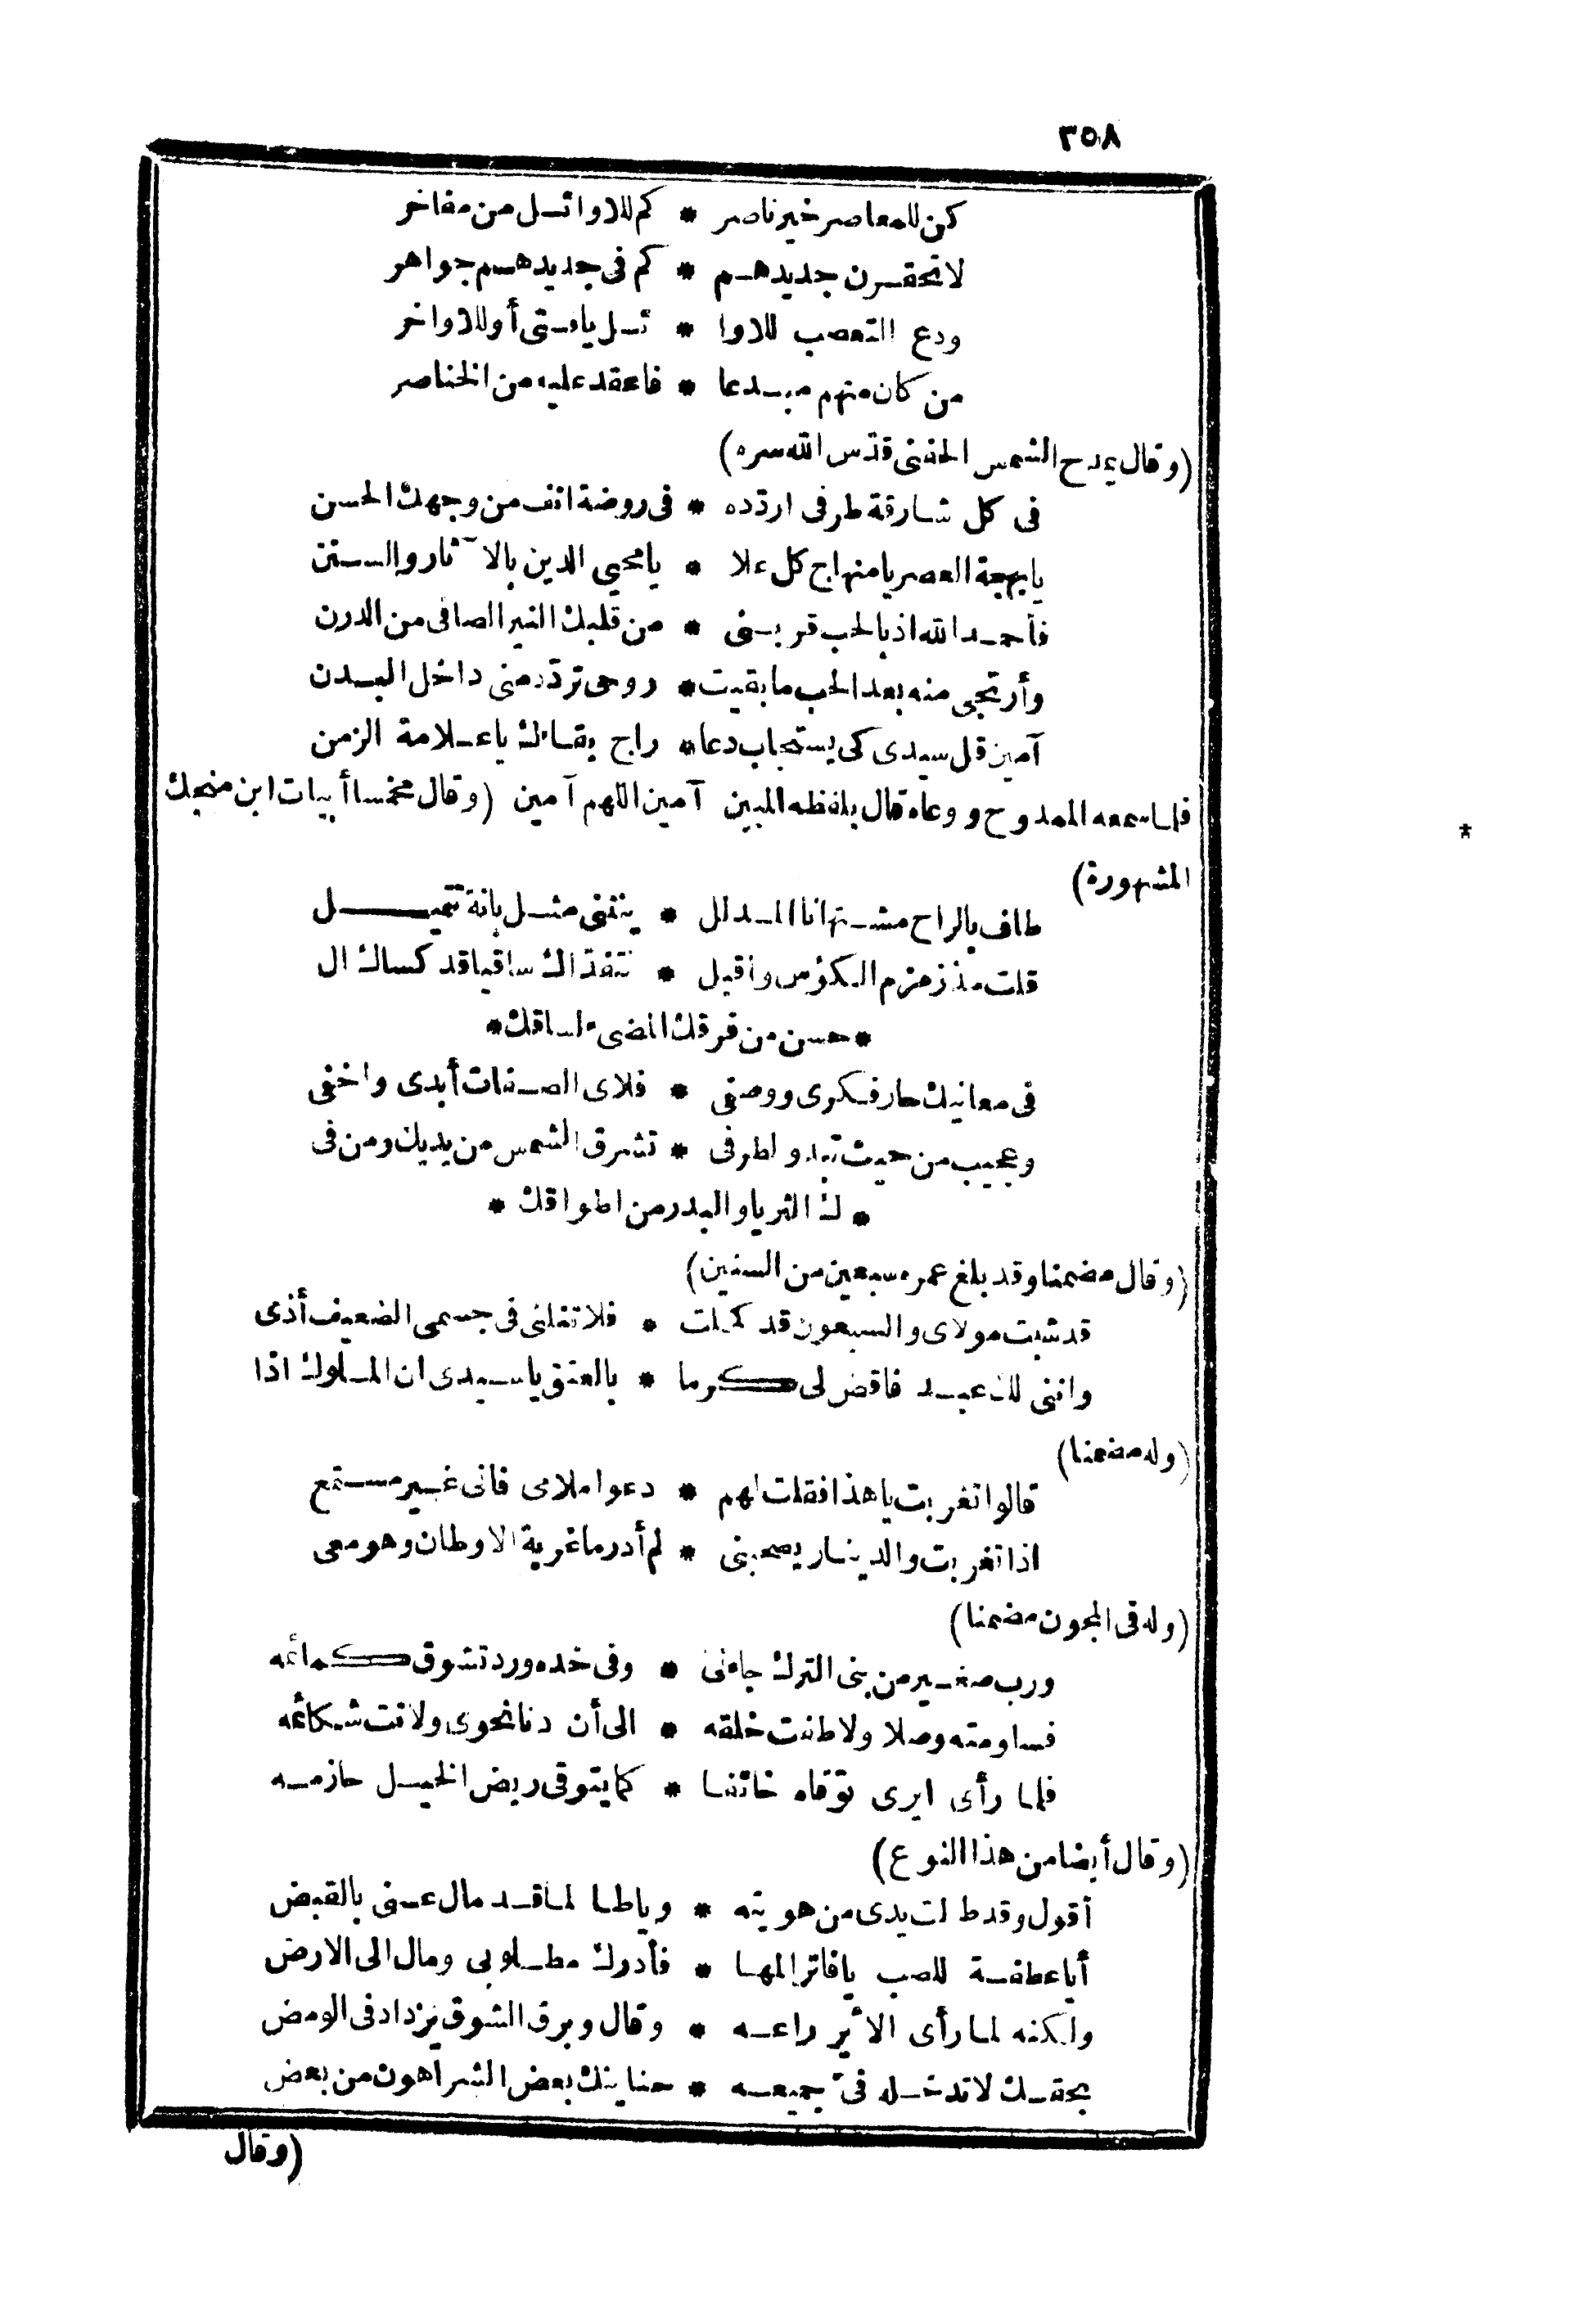 ٣٥٨
كن للمعاصر خير ناصر * كم للاوائل من مفاخر
لا تحقرن جديدهم * كم فى جديدهم جواهر
ودع التعصب للاوا * ئل يا فتى أو للاواخر
من كان منهم مبدعا * فاعقد عليه من الخناصر
(وقال يمدح الشمس الحفنى قدّس الله سره)
فى كل شارقة طرفى اردّده * فى روضة انف من وجهك الحسن
يا بهجة العصر يا منهاج كل علا * يا محيي الدين بالآثار والسنن
فأحمد الله اذ بالحب قربنى * من قلبك النير الصافى من الدرن
وأرتجى منه بعد الحب ما بقيت * روحى تردّد منى داخل البدن
آمين قل سيدى كى يستجاب دعا * راج بقاك يا علامة الزمن
فلما سمعه الممدوح ووعاه قال بلفظه المبين آمين اللهم آمين (وقال مخمسا أبيات ابن منجك
المشهورة)
طاف بالراح مشتهانا المدلل * ينثنى مثل بانة تتميل
قلت مذ زمزم الكؤس وأقبل * تتفدّاك ساقيا قد كساك ال
* حسن من فرقك المضىء لساقك *
فى معانيك حار فكرى ووصفى * فلاى الصفات أبدى واخفى
وعجيب من حيث تبدو لطرفى * تشرق الشمس من يديك ومن فى
* ك الثريا والبدر من اطواقك *
(وقال مضمنا وقد بلغ عمره سبعين من السنين)
قد شبت مولاى والسبعون قد كملت * فلا تقلنى فى جسمى الضعيف أذى
واننى لك عبد فاقض لى كرما * بالعتق يا سيدى ان الملوك اذا
(وله مضمنا)
قالوا تغربت يا هذا فقلت لهم * دعوا ملامى فانى غير مستمع
اذا تغربت والدينار يصحبنى * لم أدر ما غربة الاوطان وهو معى
(وله فى المجون مضمنا)
ورب صغير من بنى الترك جاءنى * وفى خده ورد تشوق كمائمه
فساومته وصلا ولاطفت خلقه * الى أن دنا نحوى ولانت شكائمه
فلما رأى ايرى توّفاه خائفا * كما يتوقى ريض الخيل حازمه
(وقال أيضا من هذا النوع)
أقول وقد طالت يدى من هويته * ويا طالما قد مال عنى بالقبض
أيا عطفة للصب يا فاتر المها * فأدرك مطلوبى ومال الى الارض
ولكنه لما رأى الأير راعه * وقال وبرق الشوق يزداد فى الومض
بحقك لا تدخله فىّ جميعه * حنانيك بعض الشر اهون من بعض
(وقال